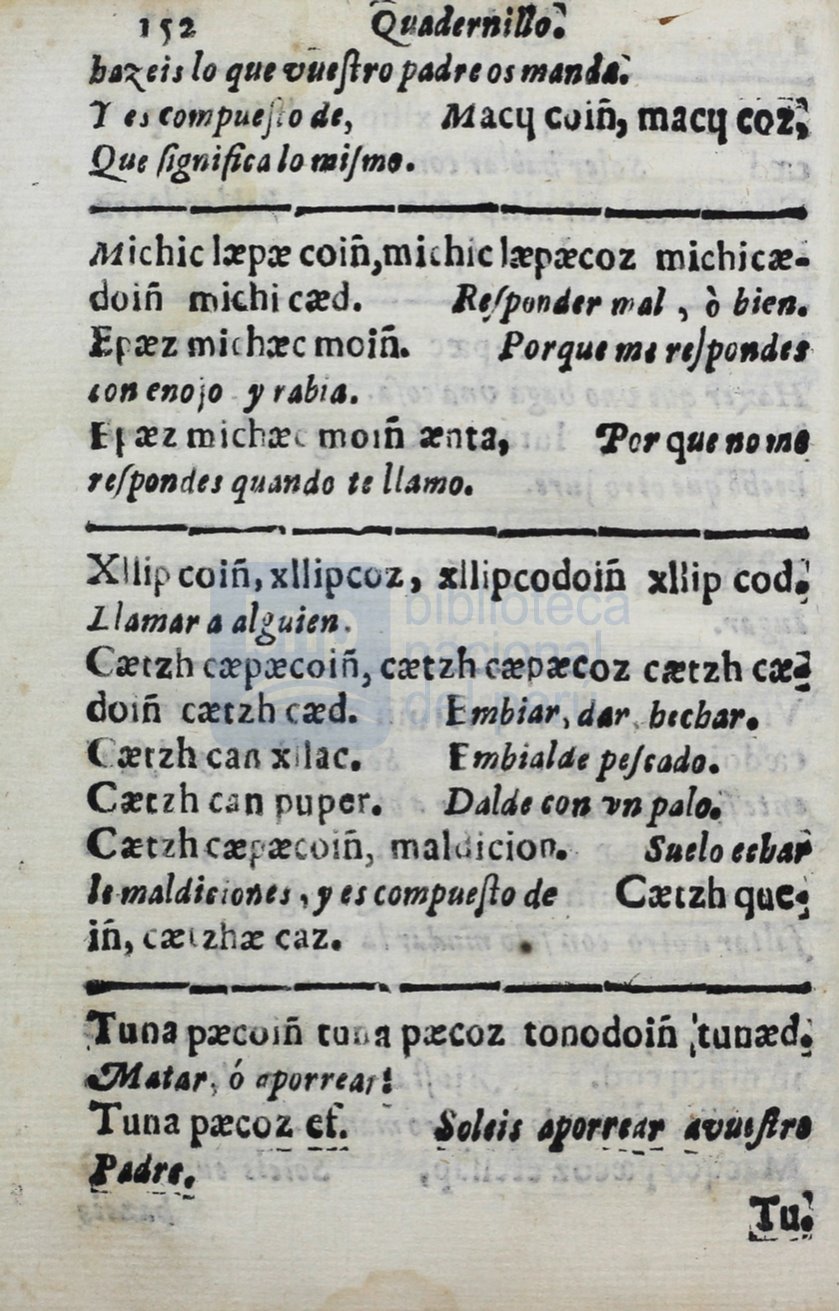 152 Quadernillo.
hazeis lo que vueſtro padre os manda.
Y es compueſto de, Macɥ coiñ, macɥ coz,
Que ſignifica lo miſmo.
Michic læpæ coiñ, michic læpæcoz michicæ-
doiñ michi cæd. Reſponder mal, ò bien.
Epæz michæc moiñ. Porque me reſpondes
con enojo y rabia.
Epæz michæc moiñ ænta, Porque no me
reſpondes quando te llamo.
Xllip coiñ, xllipcoz, xllipcodoiñ xllip cod.
Llamar a alguien.
Cætzh cæpæcoiñ, cætzh cæpæcoz cætzh cæ-
doiñ cætzh cæd. Embiar, dar, hechar.
Cætzh can xllac. Embialde peſcado.
Cætzh can puper. Dalde con vn palo.
Cætzh cæpæcoiñ, maldicion. Suelo echar
le maldiciones, y es compueſto de Cætzh que-
iñ, cætzhæ caz.
Tuna pæcoiñ tuna pæcoz tonodoiñ, tunæd.
Matar, ó aporrear!
Tuna pæcoz ef. Soleis aporrear avueſtro
Padre.
Tu.
biblioteca
nacional
del perú